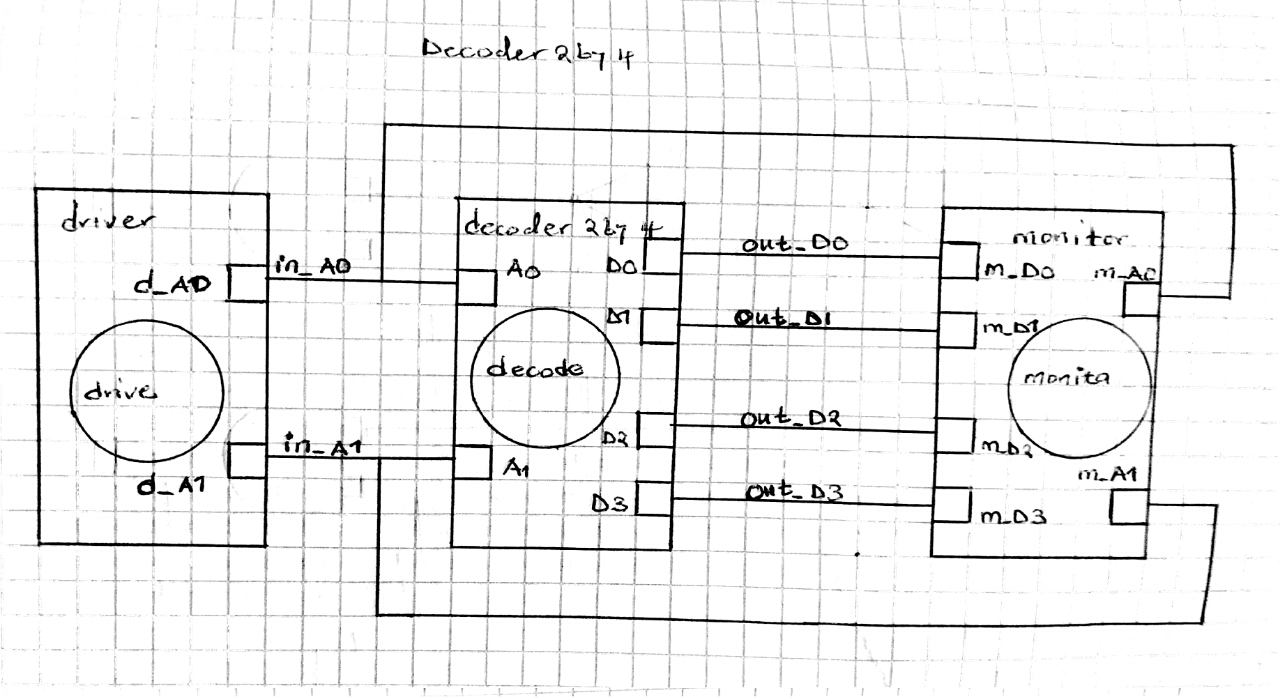 Decoder 2by4
driver
d_A0
drive
d_A1
in_A0
in_A1
decoder 2by4
A0
D0
D1
decode
D2
A1
D3
out_D0
out_D1
out_D2
out_D3
monitor
m_D0
m_A0
m_D1
monita
m_D2
m_A1
m_D3